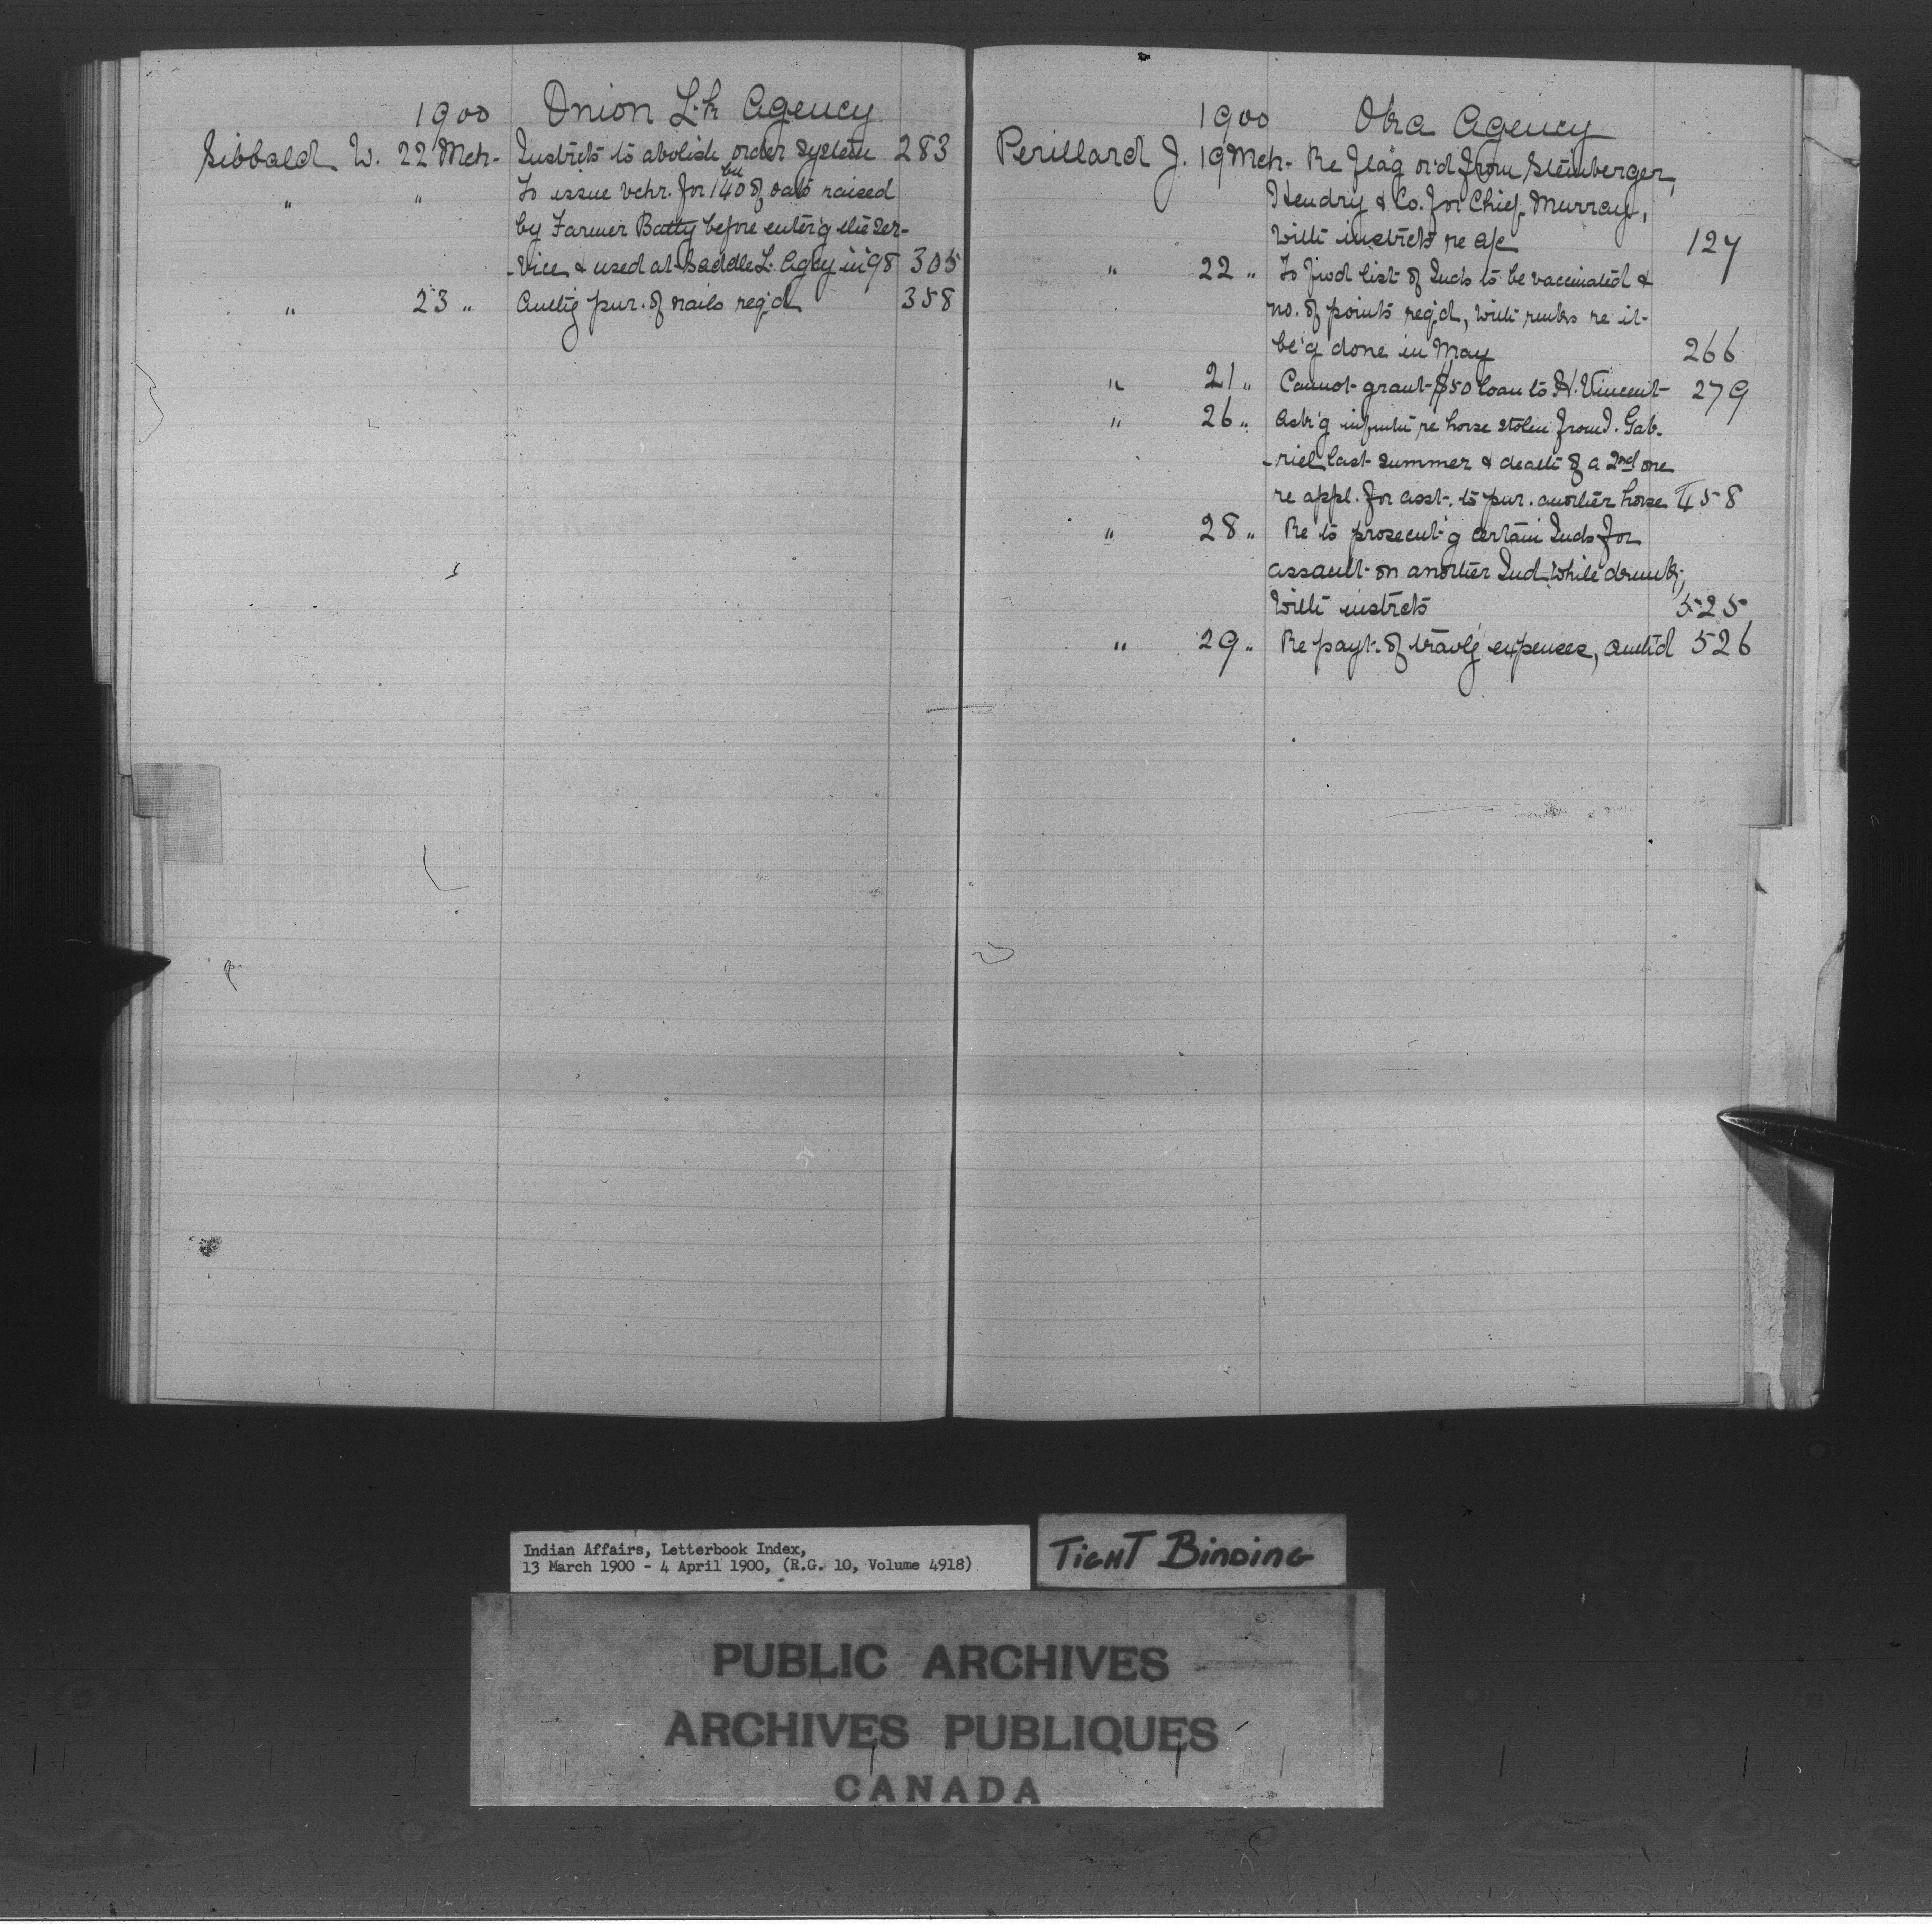 1900 Onion Lk Agency
Sibbald W. 22 Mch- Instrcts to abolish order system 283
" " To issue vchr. for 140 bu of oats raised
by Farmer Batty before enter'g the Ser-
-vice & used at Saddle L. Agcy in '98 305
" 23 " Authg pur. of nails req'd 358
1900 Obra Agency
Perillard J. 19 Mch- Re flag or'd from Steinberger,
Hendry & Co. for Chief Murray,
With instrcts re a/c 127
" 22 " To fwd list of Inds to be vaccinated &
no. of points req'd, with rmks re it
be'g done in May 266
" 21 " Cannot grant $50 loan to H. Vincent 279
" 26 " Ask'g infmtn re horse stolen from I. Gab-
-riel last summer & death of a 2nd one
re appl. for asst. to pur. another horse 458
" 28 " Re to prosecut'g certain Inds for
assault on another Ind while drunk,
With instrcts 525
" 29 " Re payt. of travlg expenses, auth'd 526
Indian Affairs, Letterbook Index,
13 March 1900 - 4 April 1900, (R.G. 10, Volume 4918)
TIGHT BINDING
PUBLIC ARCHIVES
ARCHIVES PUBLIQUES
CANADA